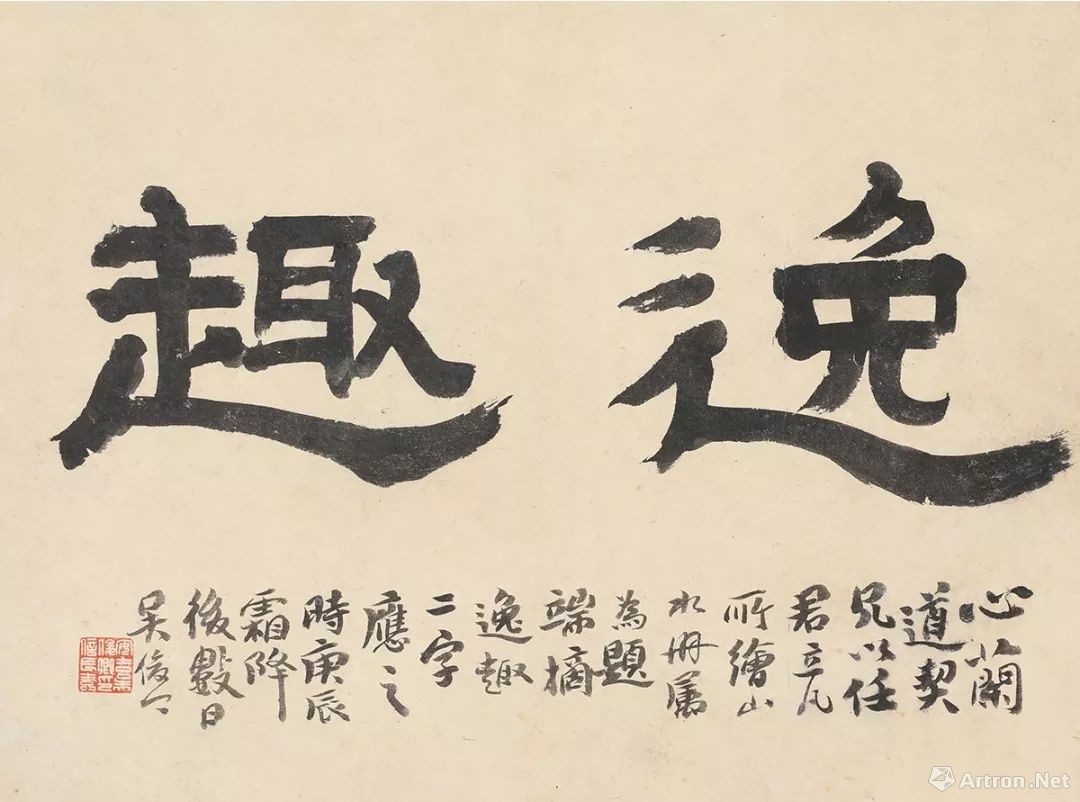 逸趣
心蘭
道契
兄以任
君立凡
所繪山
水冊屬
為題
端摘
逸趣
二字
應之
時庚辰
霜降
後數日
吴俊
Artron.Net